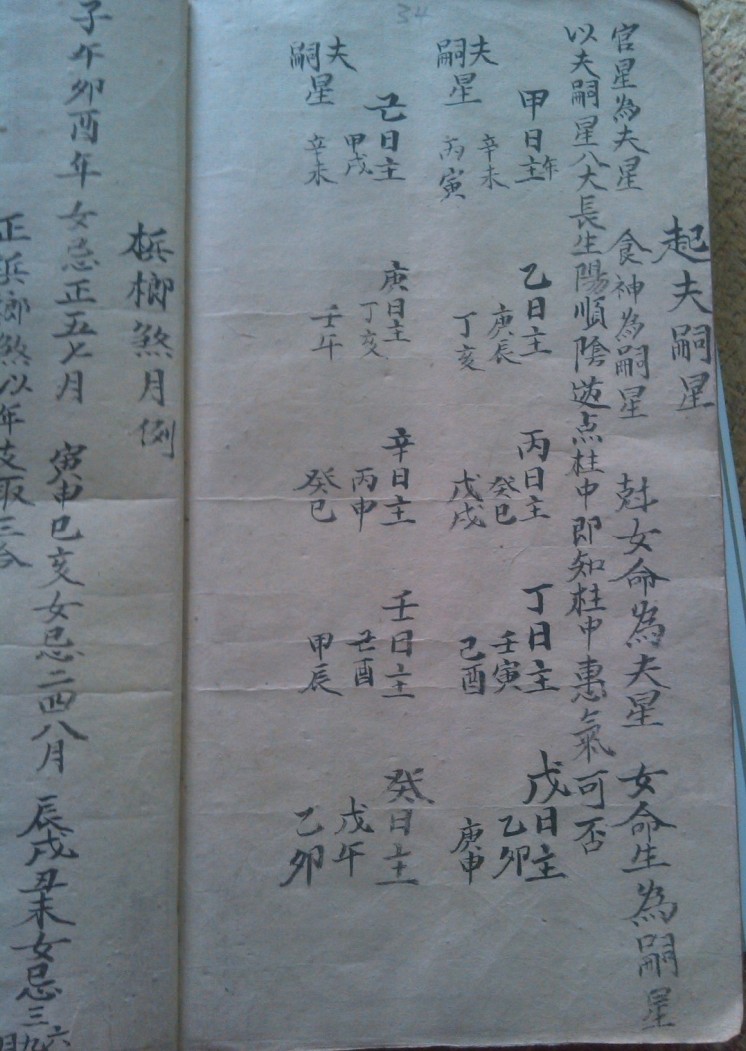 34
起夫嗣星
官星為夫星 食神為嗣星 尅女命為夫星 女命生為嗣星
以夫嗣星八大長生陽順陰逆点柱中即知柱中惠氣可否
甲日主年 乙日主 丙日主 丁日主 戊日主
夫 辛未 庚辰 癸巳 壬寅 乙卯
嗣星 丙寅 丁亥 戊戌 己酉 庚申
己日主 庚日主 辛日主 壬日主 癸日主
夫 甲戌 丁亥 丙申 己酉 戊午
嗣星 辛未 壬午 癸巳 甲辰 乙卯
梹榔煞月例
子午卯酉年女忌正五七月 寅申巳亥女忌二四八月 辰戌丑未女忌三六九月
正梹榔煞以年支取三合